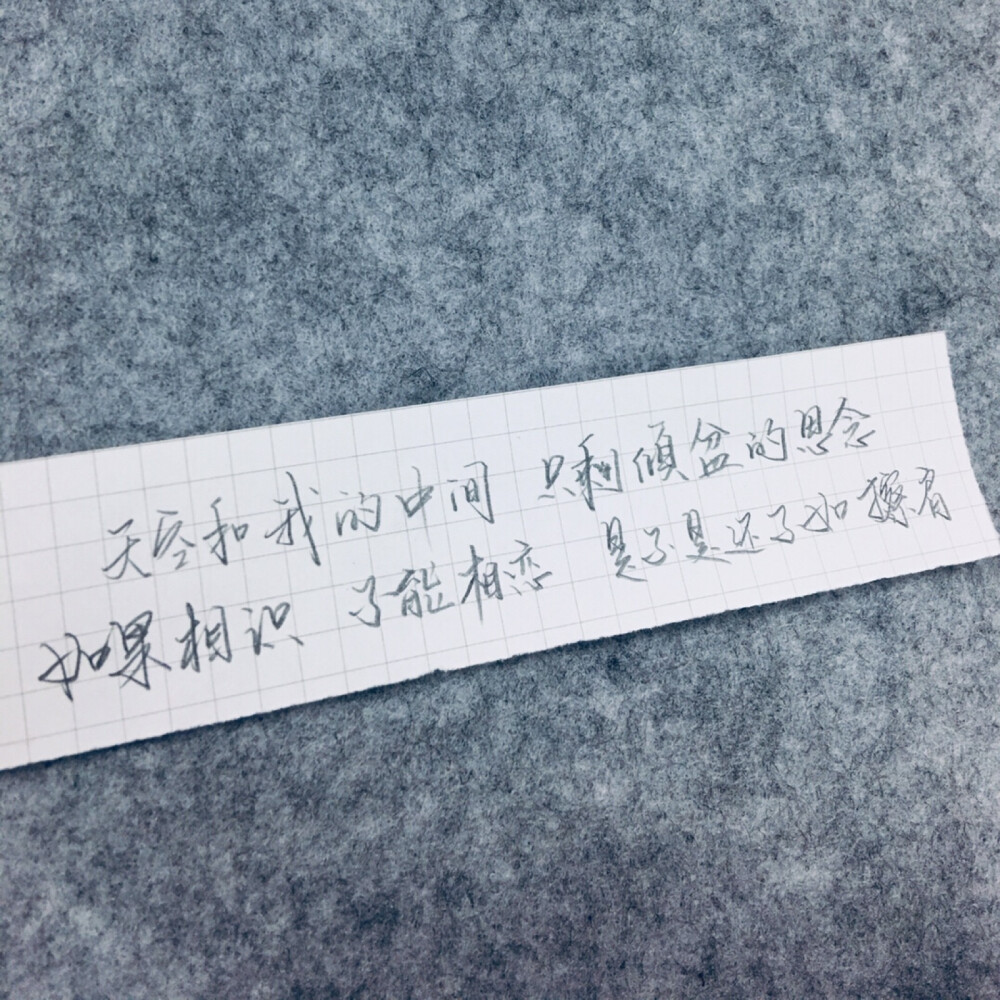 天空和我的中间 只剩倾盆的思念
如果相识 不能相恋 是不是还不如擦肩